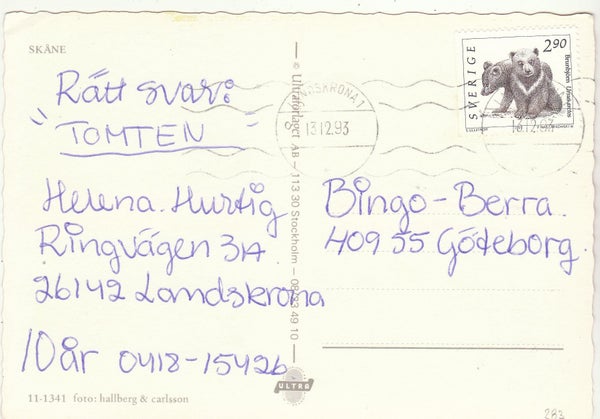 SKÅNE
Rätt svar:
"TOMTEN"
Helena Hurtig
Ringvägen 3A
26142 Landskrona
10år 0418-15426
11-1341 foto: hallberg & carlsson
© Ultraförlaget AB — 113 30 Stockholm — 08-33 49 10 —
ULTRA
DSKRONA 1
13.12.93
SVERIGE
2,90
Brunbjörn Ursus arctos
13.12.93
Bingo-Berra
409 55 Göteborg
283